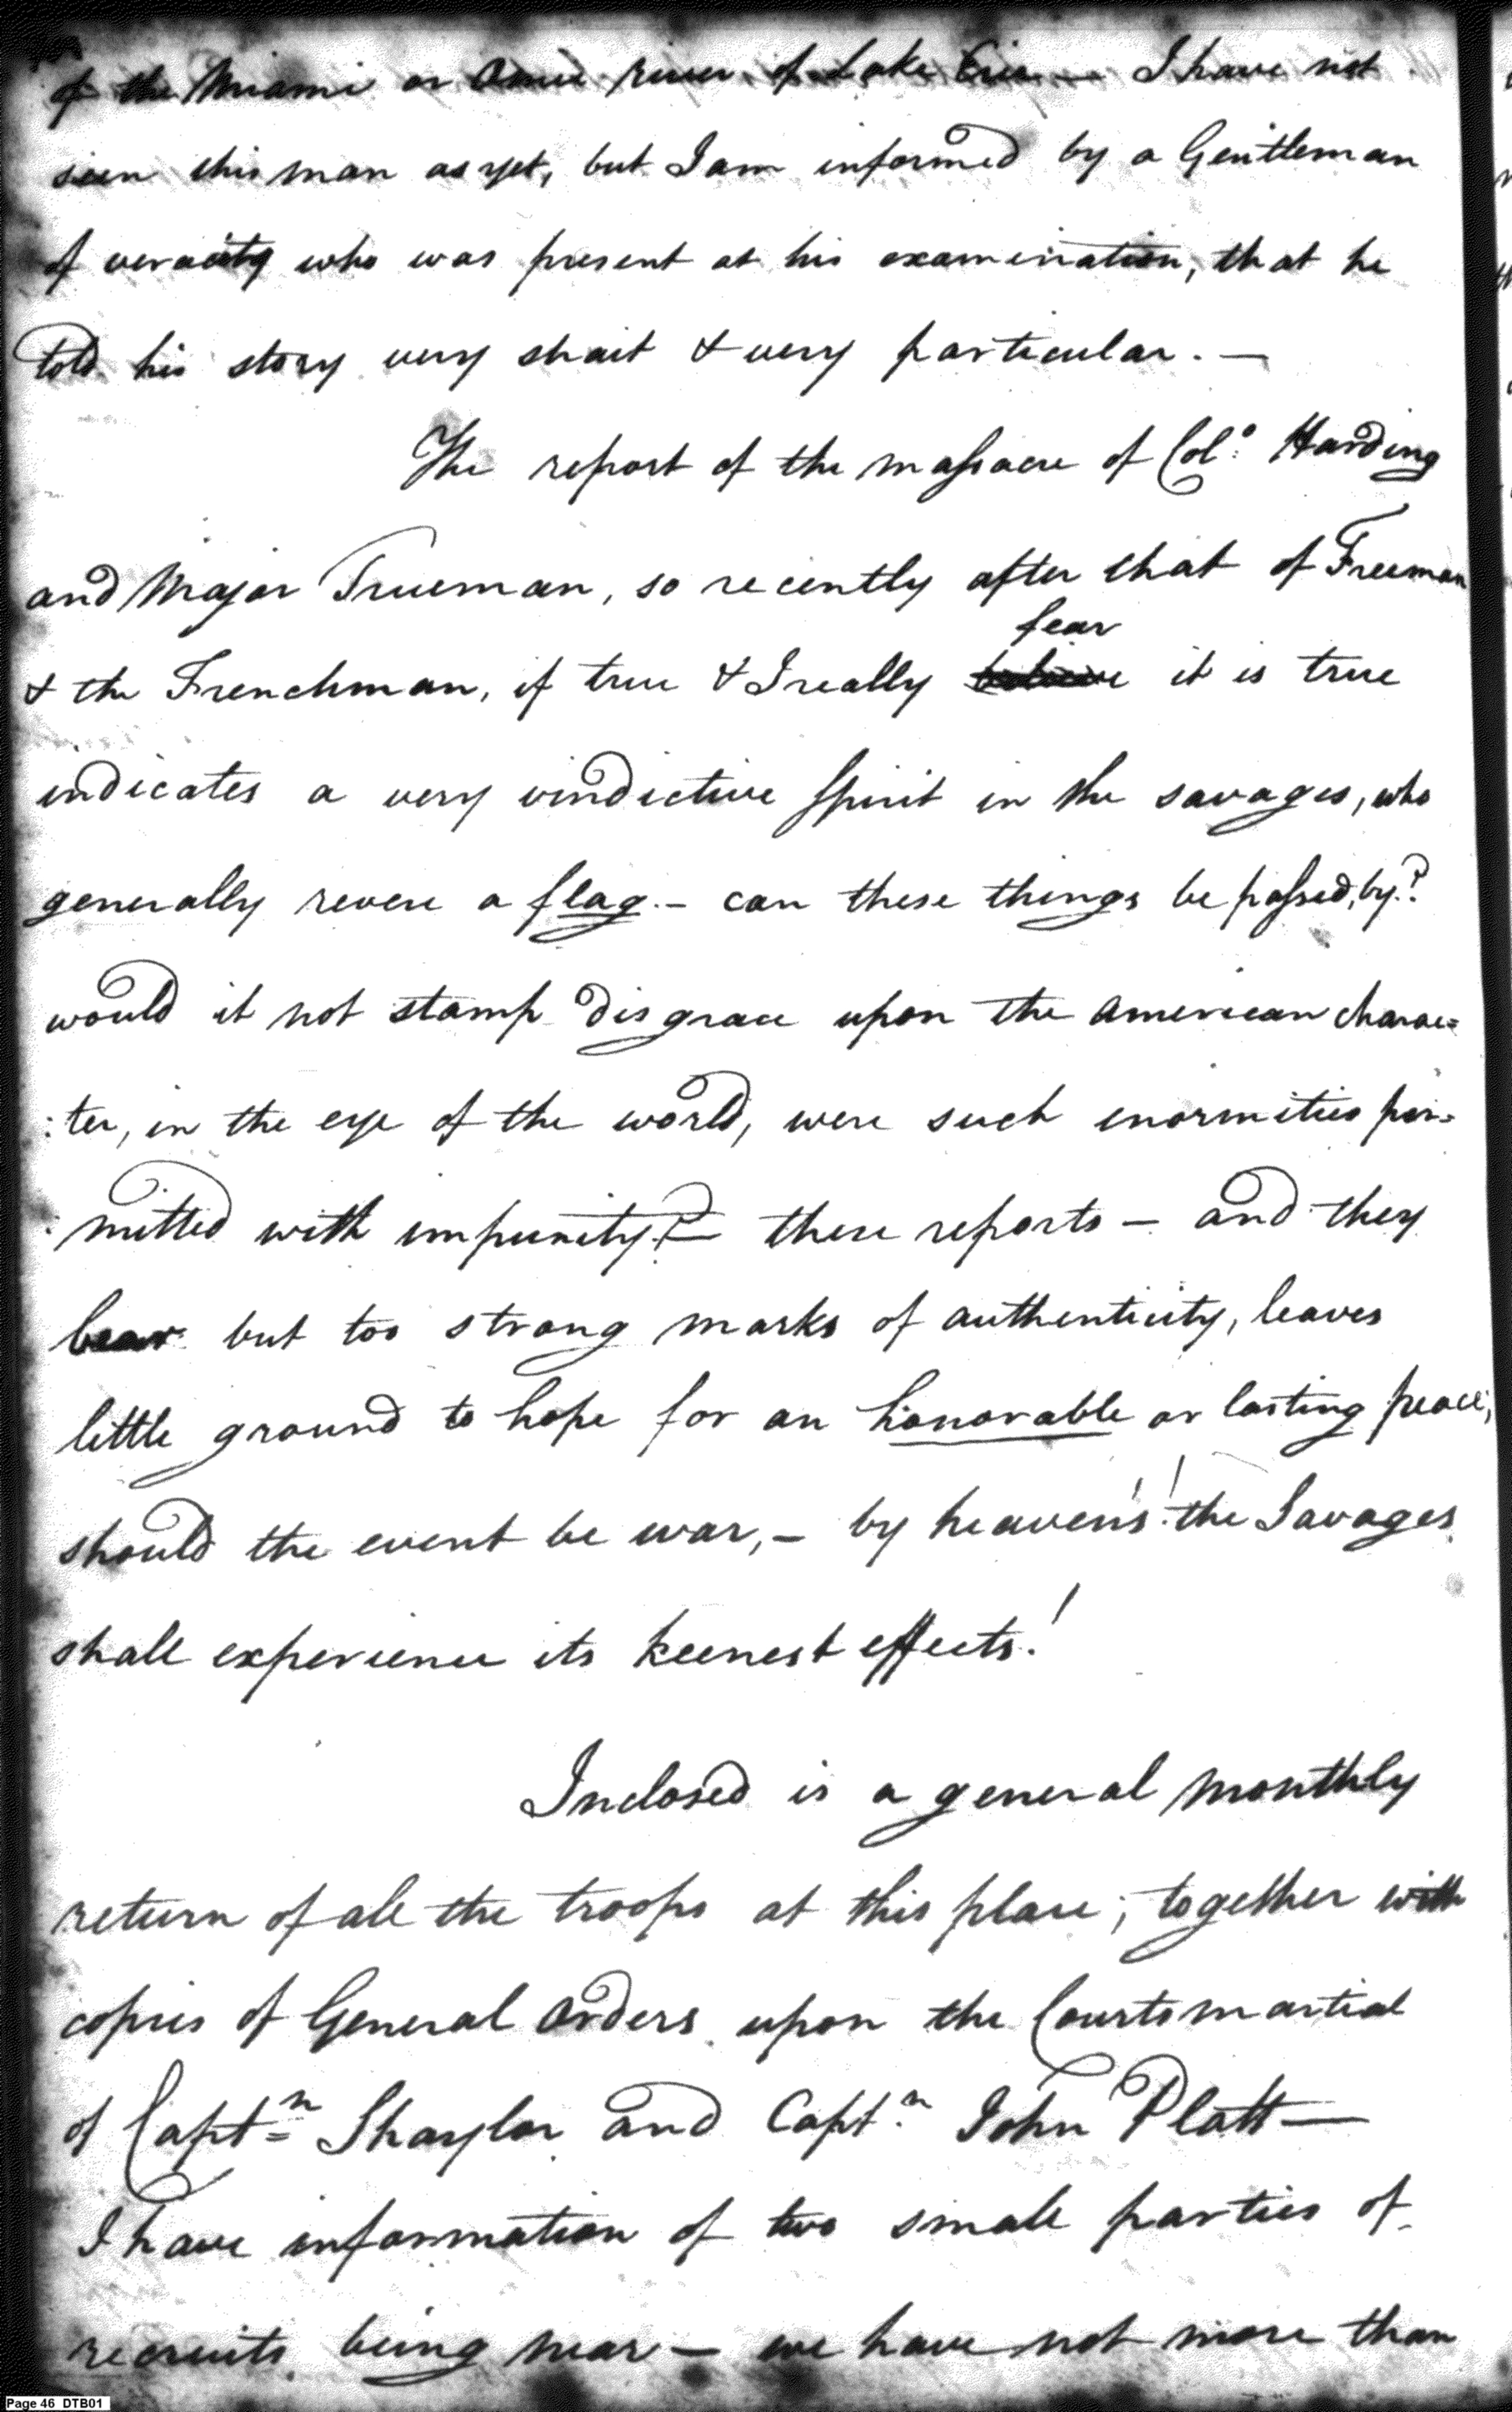 of the Miami or Omie river of Lake Erie — I have not
seen this man as yet, but I am informed by a Gentleman
of veracity who was present at his examination, that he
told his story very strait & very particular. —
The report of the massacre of Col.º Harding
and Major Trueman, so recently after that of Freeman
fear
& the Frenchman, if true & I really believe it is true
indicates a very vindictive Spirit in the savages, who
generally revere a flag. — can these things be passed, by?
would it not stamp disgrace upon the American charac=
:ter, in the eye of the world, were such enormities per=
:mitted with impunity? — these reports — and they
bear but too strong marks of authenticity, leaves
little ground to hope for an honorable or lasting peace;
should the event be war, — by heaven's! the Savages
shall experience its keenest effects!
Inclosed is a general monthly
return of all the troops at this place; together with
copies of General Orders upon the Courtsmartial
of Captn= Shaylor and Capt.n John Platt —
I have information of two small parties of
recruits being near — we have not more than
Page 46 DTB01